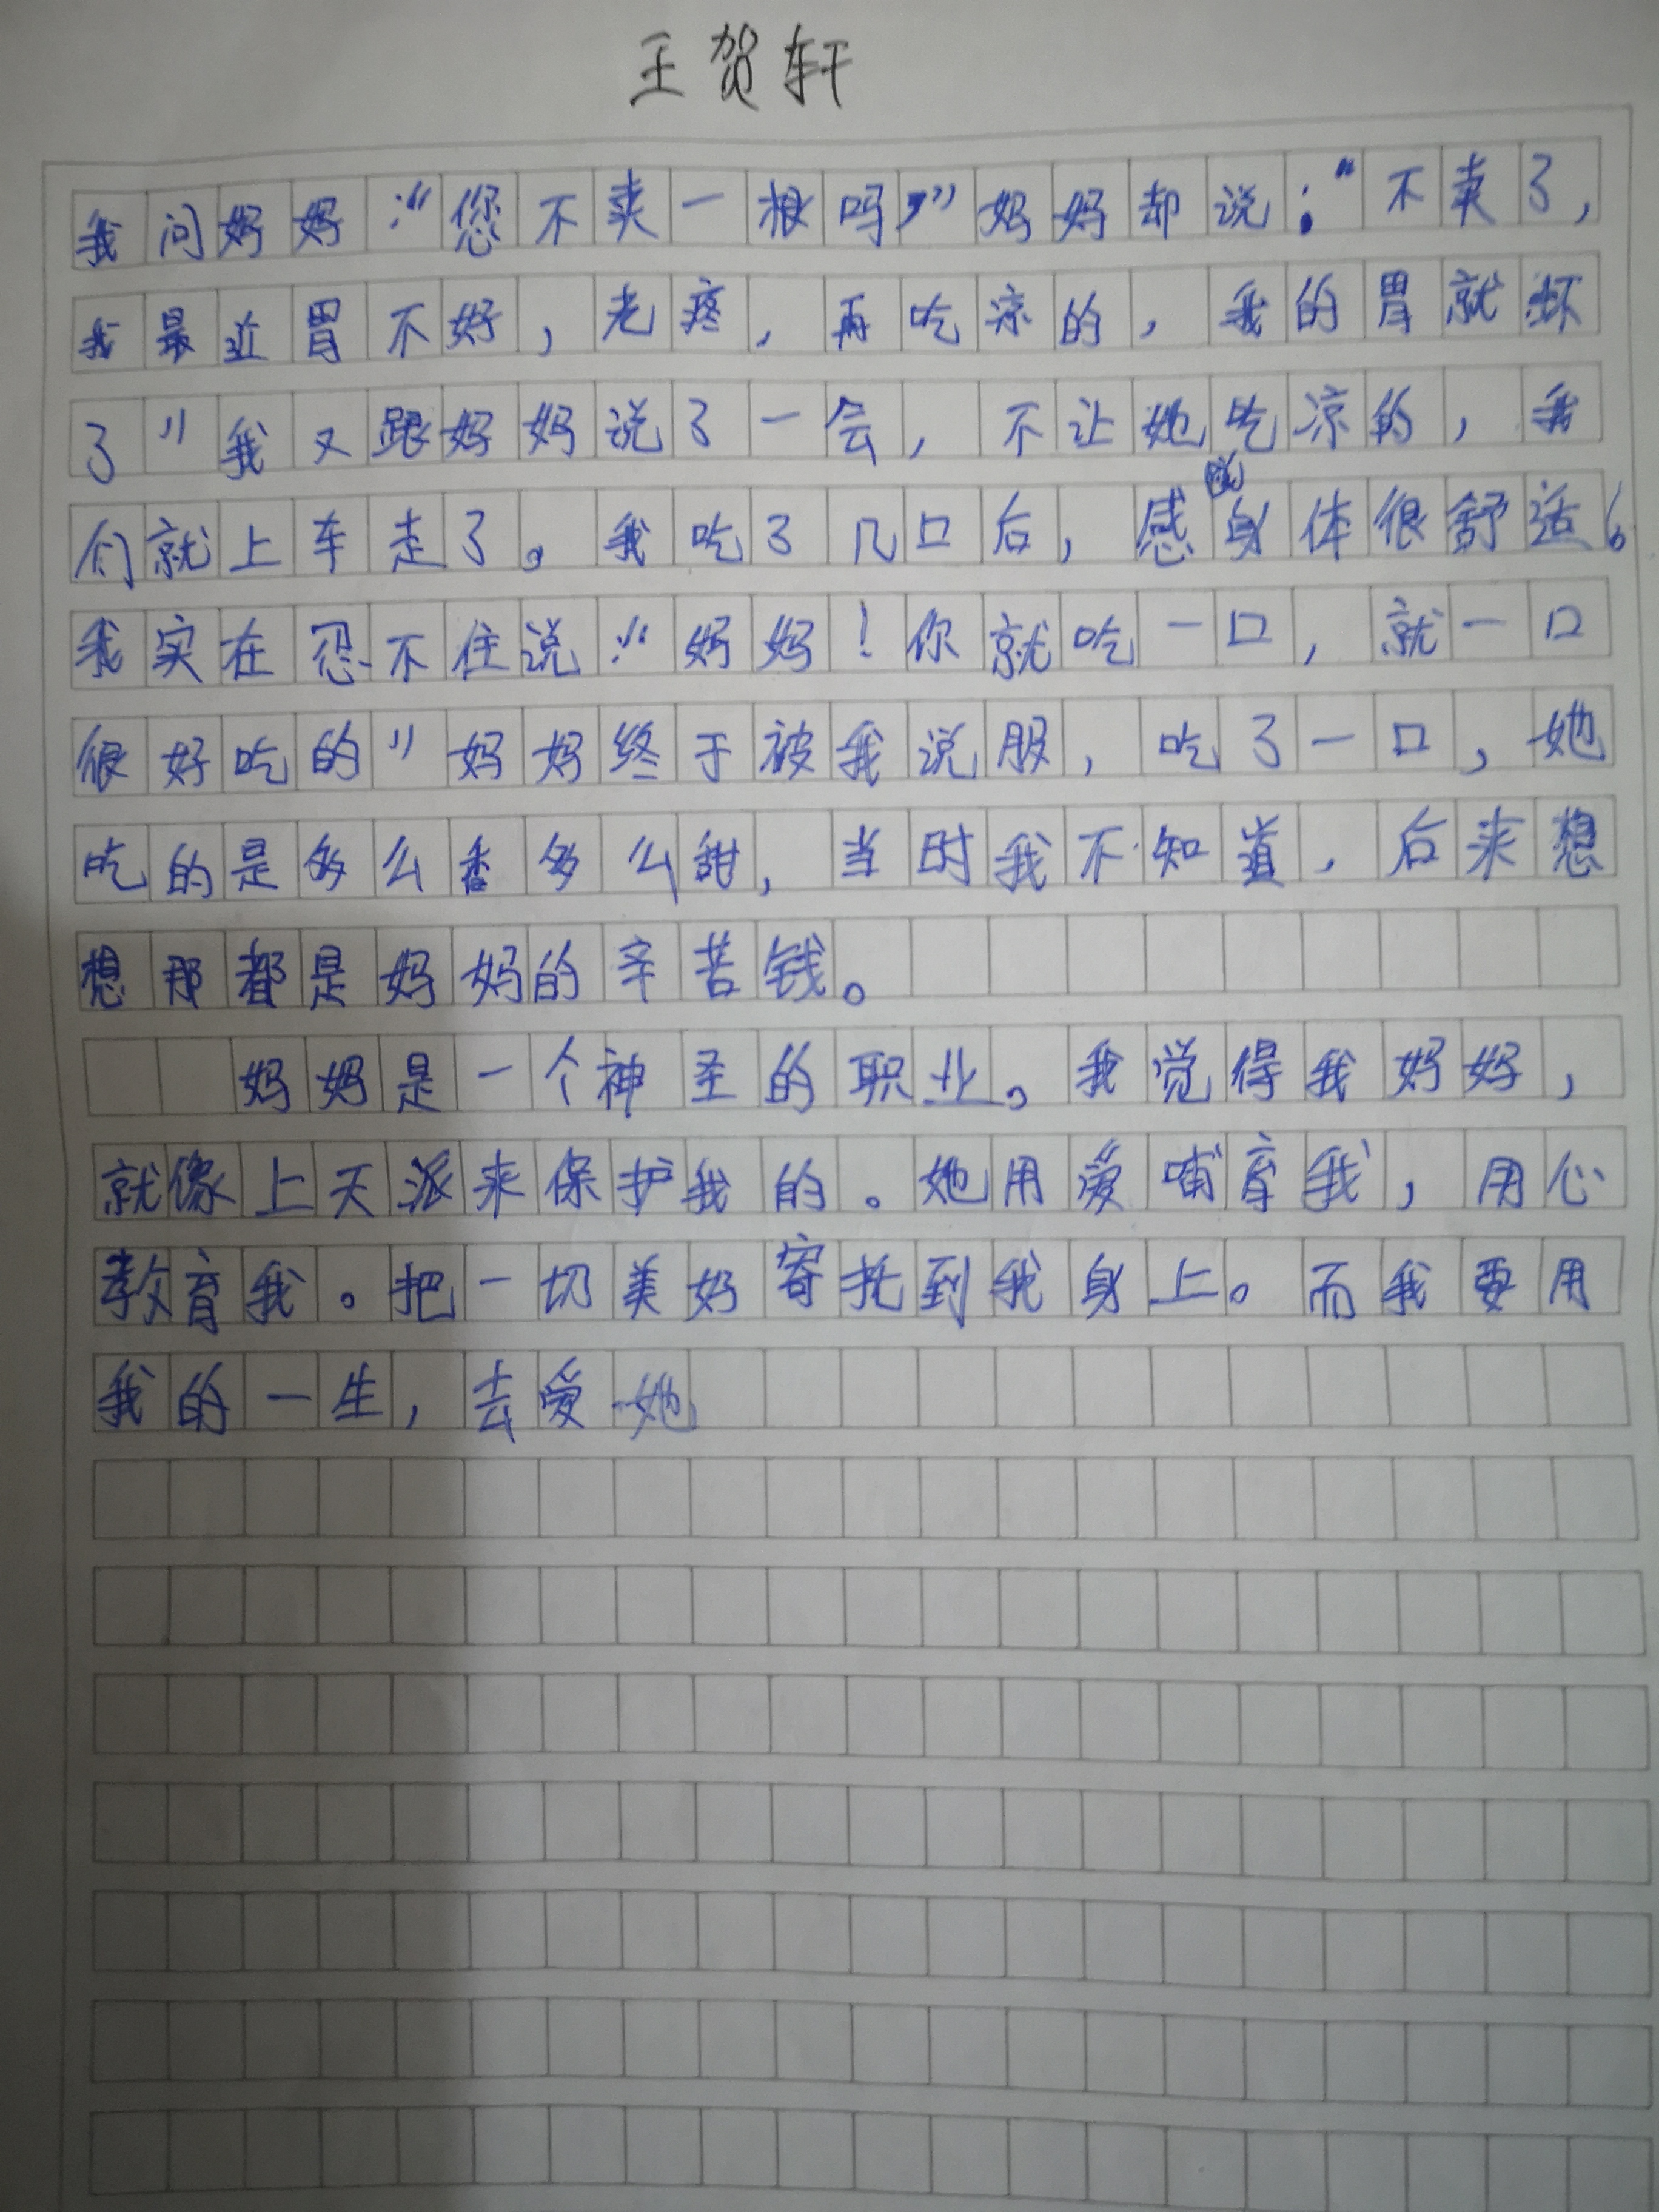 王贺轩
我问妈妈:“您不卖一根吗?”妈妈却说:“不卖了,
我最近胃不好,老疼,再吃凉的,我的胃就坏
了”我又跟妈妈说了一会,不让她吃凉的,我
们就上车走了。我吃了几口后,感身体很舒适。
我实在忍不住说:“妈妈!你就吃一口,就一口
很好吃的”妈妈终于被我说服,吃了一口,她
吃的是多么香多么甜,当时我不知道,后来想
想那都是妈妈的辛苦钱。
妈妈是一个神圣的职业。我觉得我妈妈,
就像上天派来保护我的。她用爱哺育我,用心
教育我。把一切美好寄托到我身上。而我要用
我的一生,去爱她